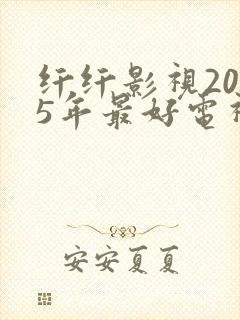 纤纤影视20
5年最好电视
安安夏夏